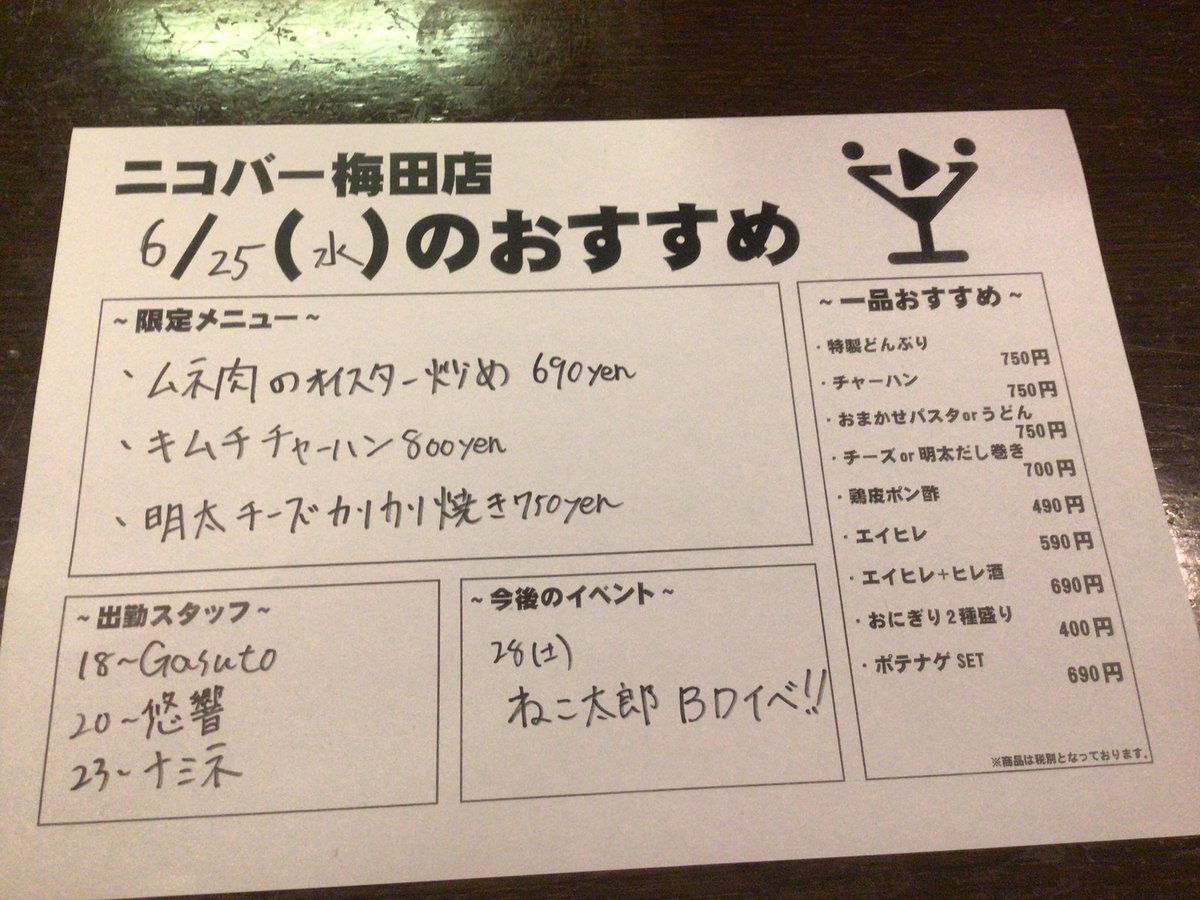 ニコバー梅田店
6/25(水)のおすすめ
~限定メニュー~
、ムネ肉のオイスター炒め 690yen
、キムチチャーハン 800yen
、明太チーズカリカリ焼き750yen
~出勤スタッフ~
18~Gasuto
20~悠響
23~ナミネ
~今後のイベント~
28(土)
ねこ太郎 BDイベ!!
~一品おすすめ~
・特製どんぶり
750円
・チャーハン
750円
・おまかせパスタorうどん
750円
・チーズor明太だし巻き
700円
・鶏皮ポン酢
490円
・エイヒレ
590円
・エイヒレ+ヒレ酒
690円
・おにぎり2種盛り
400円
・ポテナゲSET
690円
※商品は税別となっております。